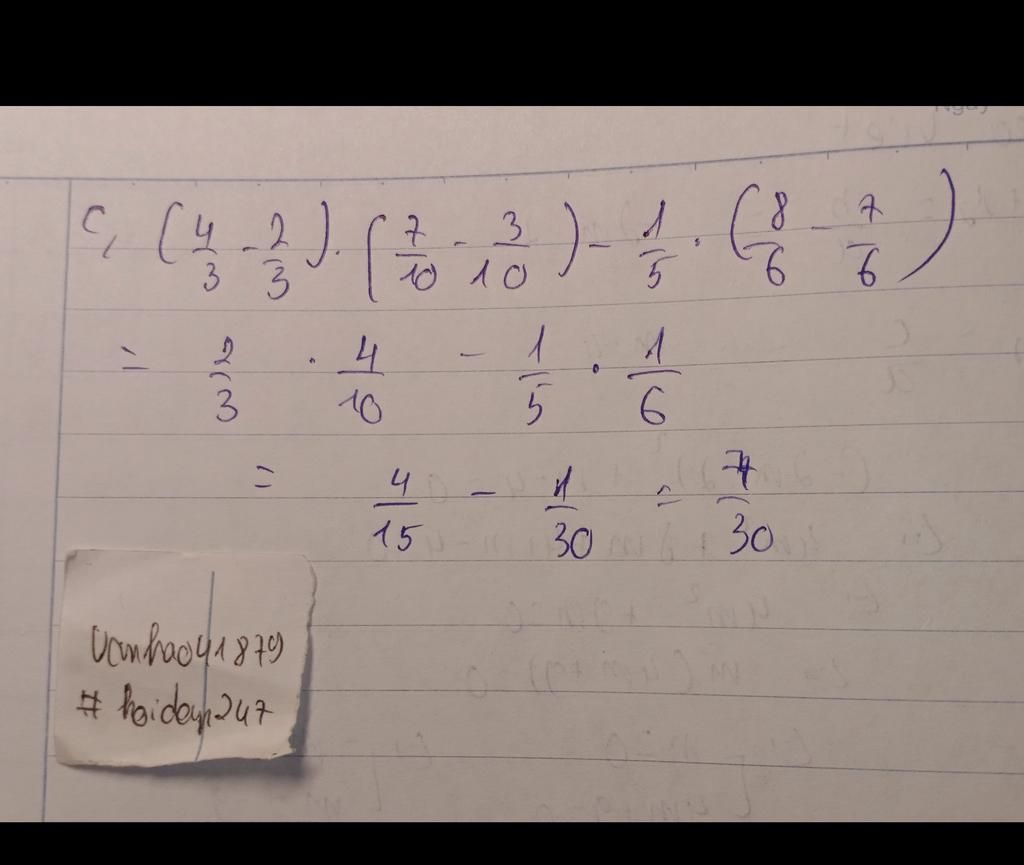 c, (4/3 - 2/3) . (7/10 - 3/10) - 1/5 . (8/6 - 7/6)
= 2/3 . 4/10 - 1/5 . 1/6
= 4/15 - 1/30 = 7/30
Vanhao41879
# hoidap247